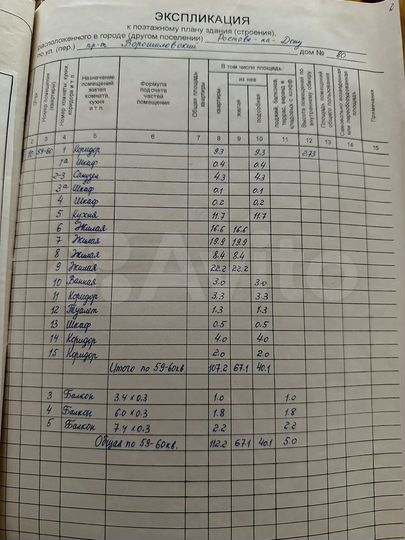 ЭКСПЛИКАЦИЯ
к поэтажному плану здания (строения),
расположенного в городе (другом поселении) Ростове-на-Дону
по ул. (пер.) пр-т Ворошиловский дом № 80
Этаж
Номер помещения (квартиры)
Номер комнаты, кухни, коридора и т.п.
Назначение помещений жилая комната, кухня и т.п.
Формула подсчета частей помещения
Общая площадь квартиры
В том числе площадь
квартиры
из нее
жилая
подсобная
лоджий, балконов, террас, веранд и кладовых с коэфф.
Высота помещений по внутреннему обмеру
Площадь помещений общего пользования
Самовольно возведенная или переоборудованная площадь
Примечания
2 3 4 5 6 7 8 9 10 11 12 13 14 15
59-60 1 Коридор 9.3 9.3 2.73
1а Шкаф 0.4 0.4
2-3 Санузел 4.3 4.3
3а Шкаф 0.1 0.1
4 Шкаф 0.2 0.2
5 Кухня 11.7 11.7
6 Жилая 16.6 16.6
7 Жилая 19.9 19.9
8 Жилая 8.4 8.4
9 Жилая 22.2 22.2
10 Ванная 3.0 3.0
11 Коридор 3.3 3.3
12 Туалет 1.3 1.3
13 Шкаф 0.5 0.5
14 Коридор 4.0 4.0
15 Коридор 2.0 2.0
Итого по 59-60кв. 107.2 67.1 40.1
3 Балкон 3.4 x 0.3 1.0 1.0
4 Балкон 6.0 x 0.3 1.8 1.8
5 Балкон 7.4 x 0.3 2.2 2.2
Общая по 59-60кв. 112.2 67.1 40.1 5.0
Avito